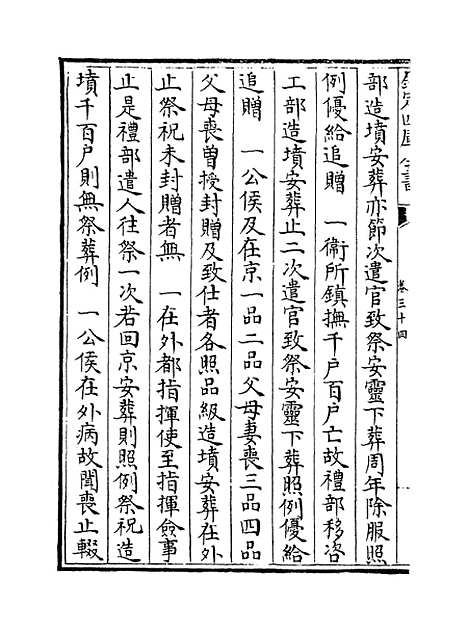 欽定四庫全書
卷三十四
部造墳安葬亦節次遣官致祭安靈下葬周年除服照
例優給追贈　一衛所鎮撫千户百户亡故禮部移咨
工部造墳安葬止二次遣官致祭安靈下葬照例優給
追贈　一公侯及在京一品二品父母妻喪三品四品
父母喪曽授封贈及致仕者各照品級造墳安葬在外
止祭祝未封贈者無　一在外都指揮使至指揮僉事
止是禮部遣人往祭一次若回京安葬則照例祭祝造
墳千百户則無祭葬例　一公侯在外病故聞喪止輟